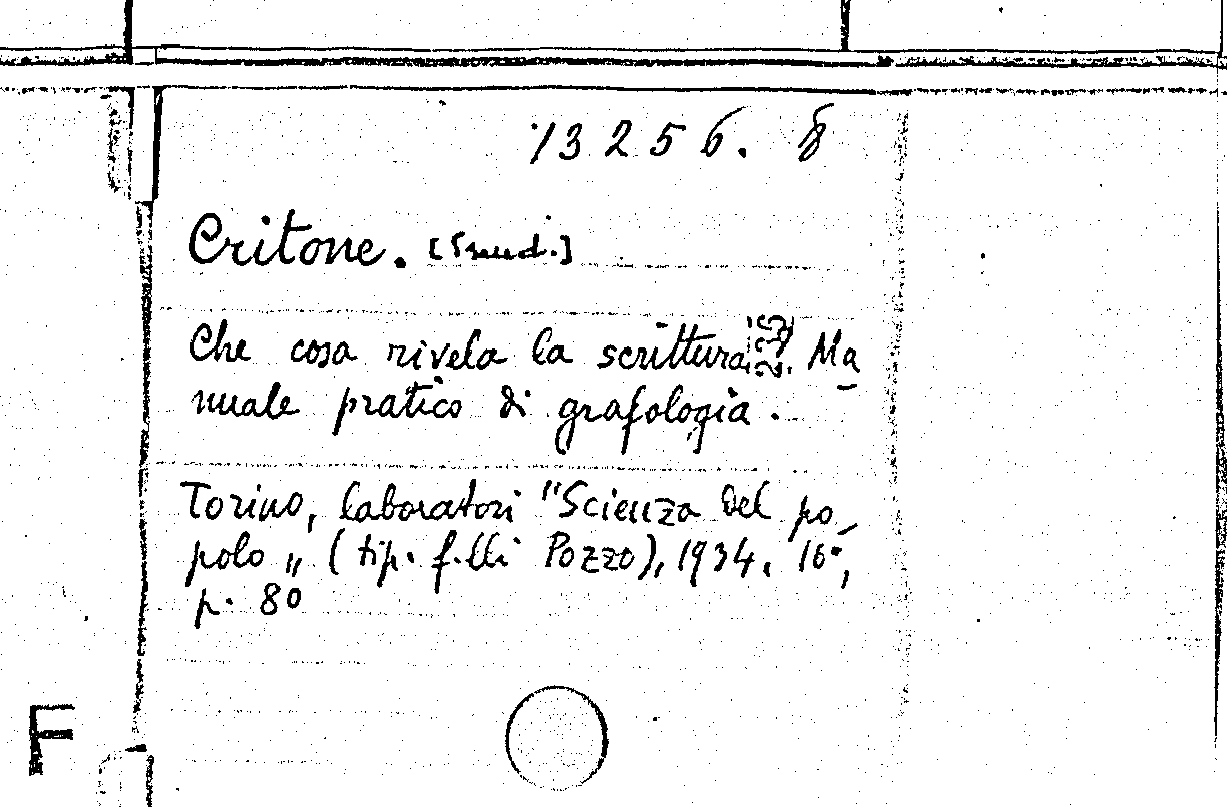 13256. 8
Critone. [Pseud.]
Che cosa rivela la scrittura. Ma
nuale pratico di grafologia.
Torino, laboratori "Scienza del po-
polo" (tip. f.lli Pozzo), 1934. 16°,
p. 80
F